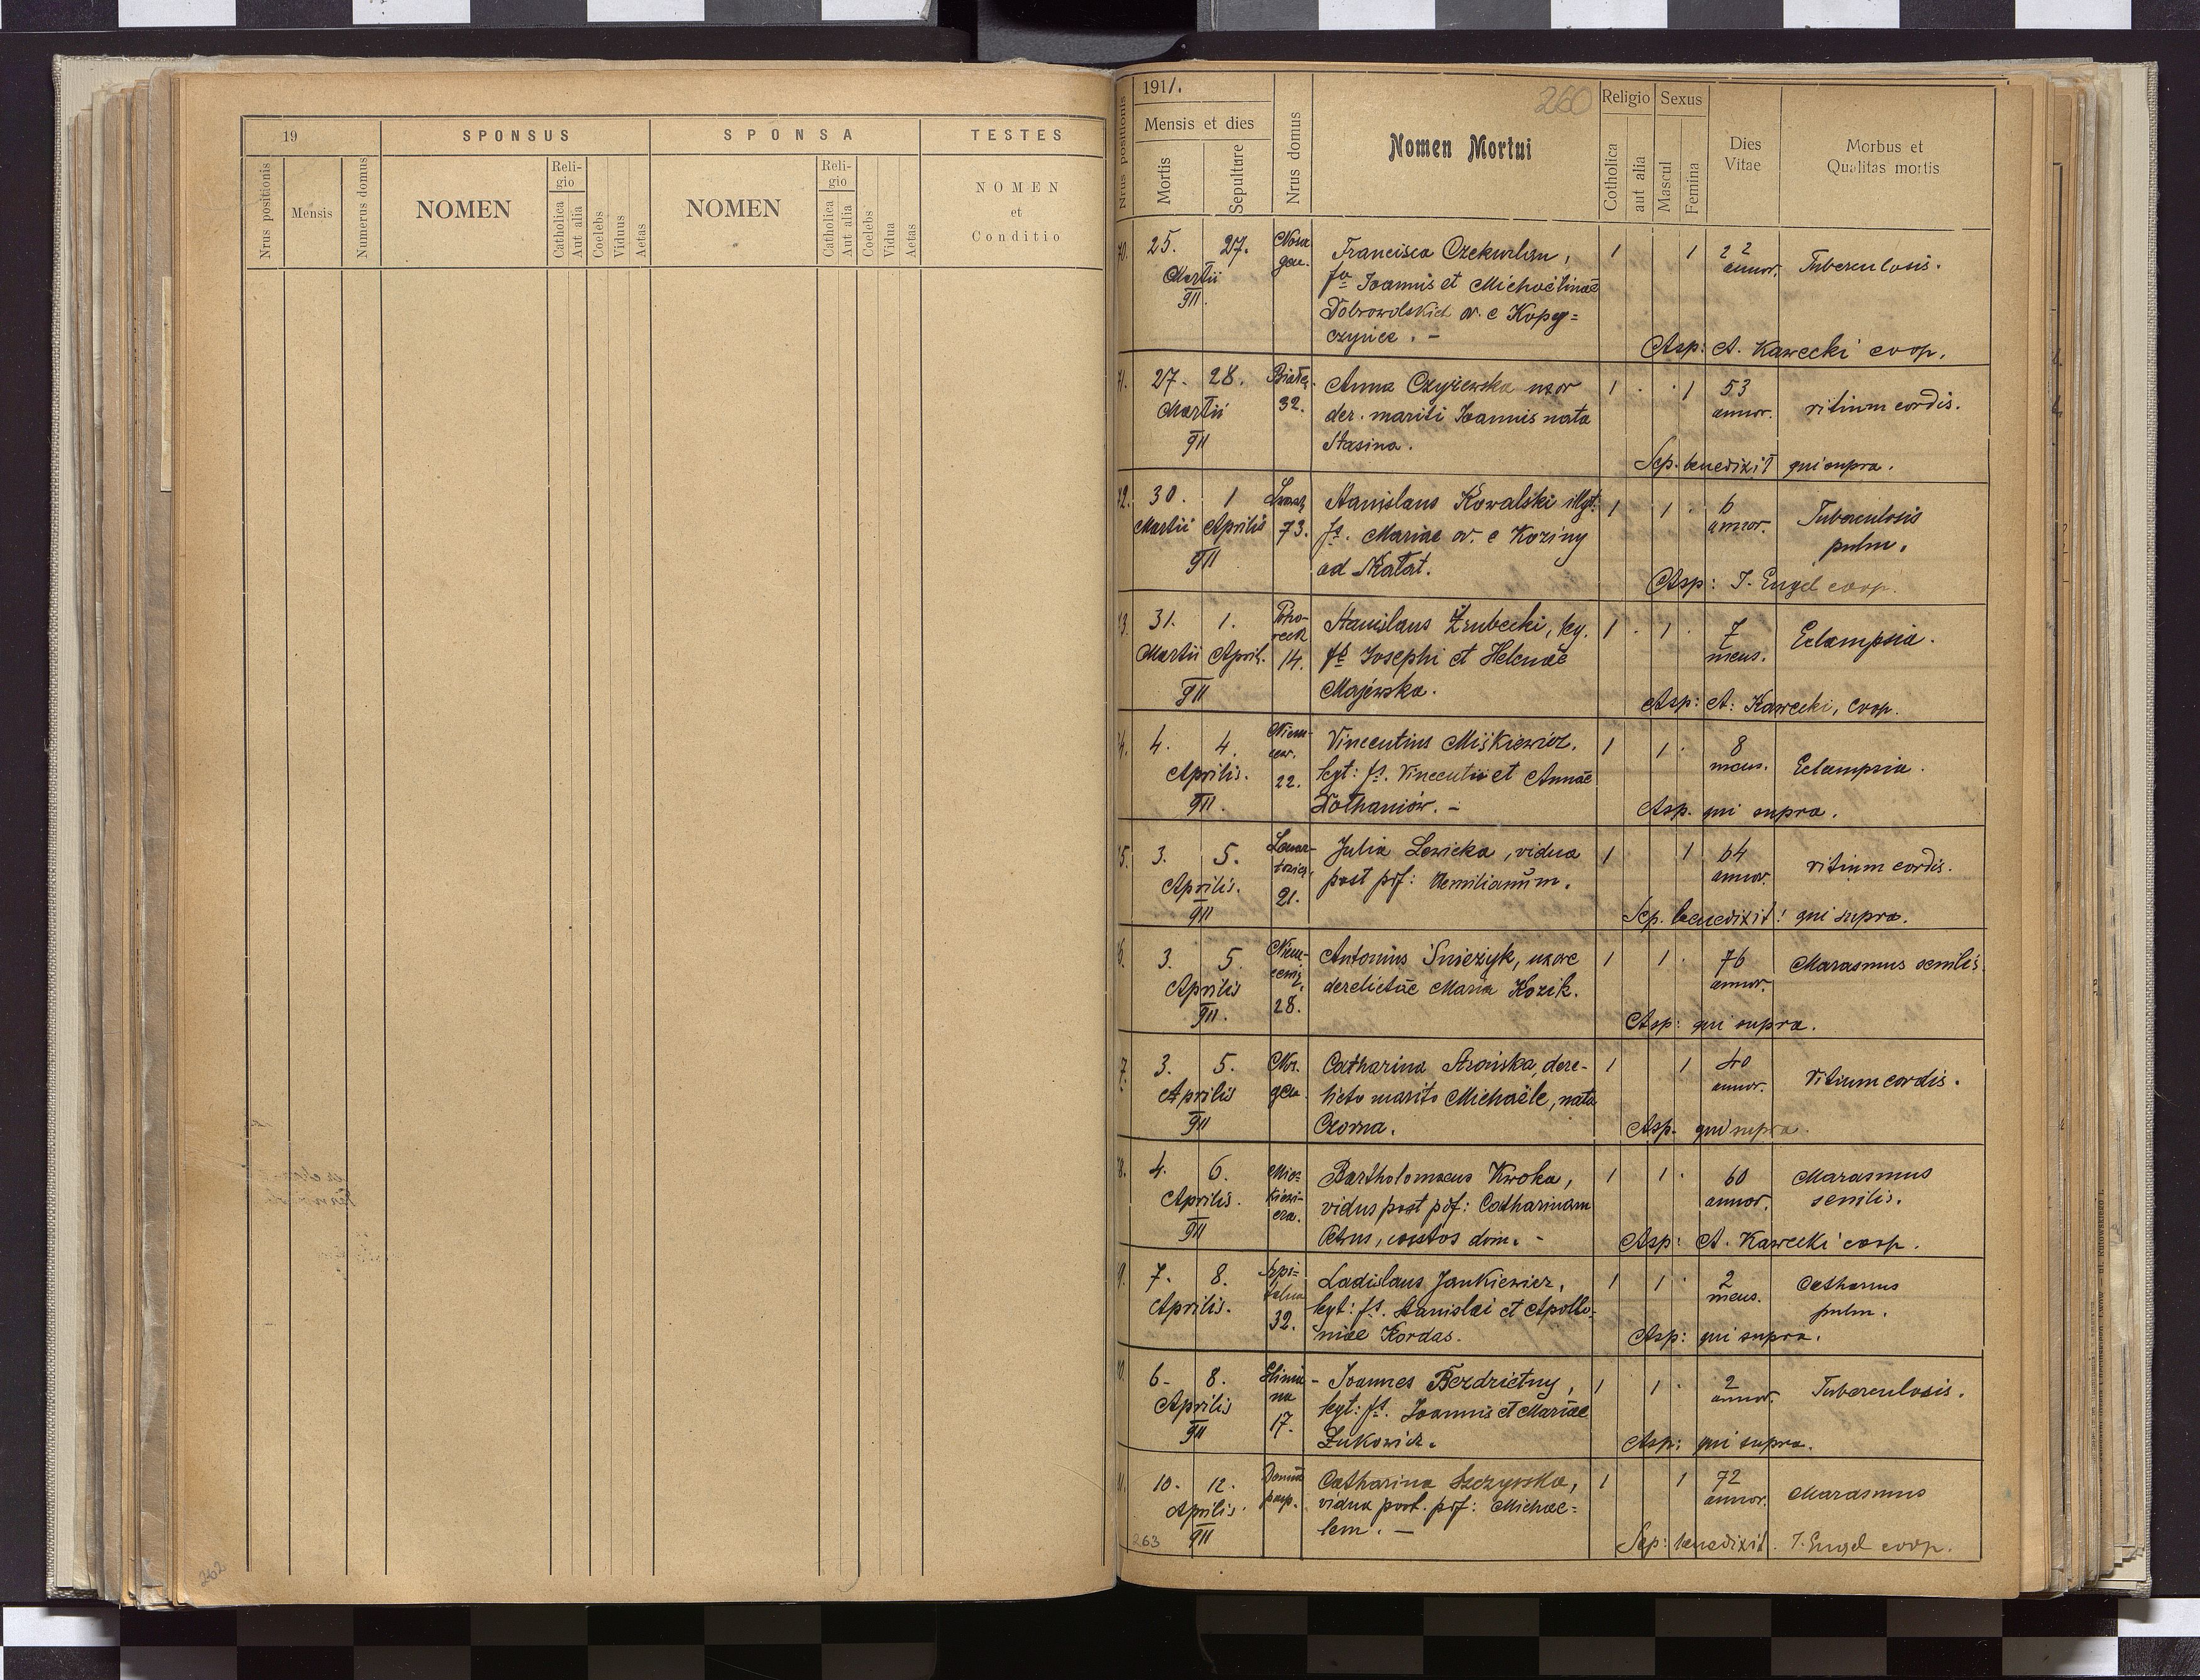 19
SPONSUS
SPONSA
TESTES
Nrus positionis
Mensis
Numerus domus
NOMEN
Reli-
gio
Catholica
Aut alia
Coelebs
Viduus
Aetas
NOMEN
Reli-
gio
Catholica
Aut alia
Coelebs
Vidua
Aetas
NOMEN
et
Conditio
262
1911.
260
Nrus positionis
Mensis et dies
Mortis
Sepulture
Nrus domus
Nomen Mortui
Religio
Cotholica
aut alia
Sexus
Mascul
Femina
Dies
Vitae
Morbus et
Qualitas mortis
70. 25. 27. Noso Francisca 1 1 22 Tuberculosis.
gen. annor.
Martii fa Joannis et Michaëlinae
911. Dobrowolskich or. e Kopy=
czynce. -
Asp: A. Kawecki coop.
71. 27. 28. Anna Czyżewska uxor 1 . . 1 53 vitium cordis.
32. annor.
Martii der. mariti Joannis nata
911 Stasina.
Sep. benedixit qui supra.
72. 30. 1 Stanislaus Kowalski illgt. 1 1 . 6 Tuberculosis
Martii Aprilis 73. fs. Mariae or. e Koziny annor. pulm.
911 ad Skałat.
Asp: J. Engel coop.
73. 31. 1. Stanislaus Żrubecki, leg. 1 . 1 . 7 Eclampsia.
Martii April. 14. fs Josephi et Helenae mens.
911 Majewska.
Asp: A. Kawecki, coop.
74. 4. 4. Niem- Vincentius Miśkiewicz, 1 1 . 8 Eclampsia.
cew. mens.
Aprilis. 22. legt: fs. Vincentii et Annae
911. Dothaniów. -
Asp. qui supra.
75. 3. 5. Julia Lewicka, vidua 1 1 64 vitium cordis.
Aprilis. 21. post pdf: Aemilianum. annor.
911
Sep. benedixit! qui supra.
76. 3. 5. Niem- Antonius Śnieżyk, uxore 1 1 . 76 Marasmus senilis
Aprilis derelictae Maria Kozik. annor.
911. 28.
Asp: qui supra.
77. 3. 5. Catharina dere- 1 1 40 Vitium cordis.
Aprilis gen. licto marito Michaële, nata annor.
911 Czorna.
Asp. qui supra.
78. 4. 6. Mic- Bartholomaeus Kwoka, 1 1 . 60 Marasmus
Aprilis. kiewi- viduus post pdf: Catharinam annor. senilis.
911 cza. Petrus, custos dom. -
Asp: A. Kawecki coop.
79. 7. 8. Szpi- Ladislaus Jankiewicz, 1 1 . 2 Catharus
Aprilis. talna legt: fs. Stanislai et Apollo- mens. pulm.
32. niae Kordas.
Asp: qui supra.
80. 6. 8. - Joannes Bezdrietny, 1 1 . 2 Tuberculosis.
Aprilis legt: fs. Joannis et Mariae annor.
911 17. Żukowicz.
Asp: qui supra.
81. 10. 12. Domus Catharina 1 1 72 Marasmus
Aprilis. paup. vidua post. pdf: Michae- annor.
911 lem. -
Sep: benedixit. J. Engel coop.
263